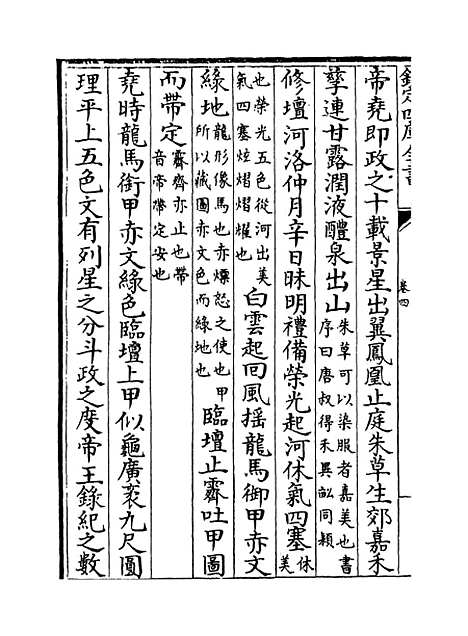 欽定四庫全書
卷四
帝堯即政之十載景星出翼鳳凰止庭朱草生郊嘉禾
孳連甘露潤液醴泉出山朱草可以染服者嘉美也書序曰唐叔得禾異畝同穎
修壇河洛仲月辛日昧明禮備榮光起河休氣四塞休美
也榮光五色從河出美氣四塞炫熠熠耀也白雲起回風揺龍馬御甲赤文
綠地龍形像馬也赤熛怒之使也甲所以藏圖赤文色而綠地也臨壇止霽吐甲圖
而帶定霽齊亦止也帶音帝帶定安也
堯時龍馬銜甲赤文綠色臨壇上甲似龜廣袤九尺圓
理平上五色文有列星之分斗政之度帝王錄紀之數